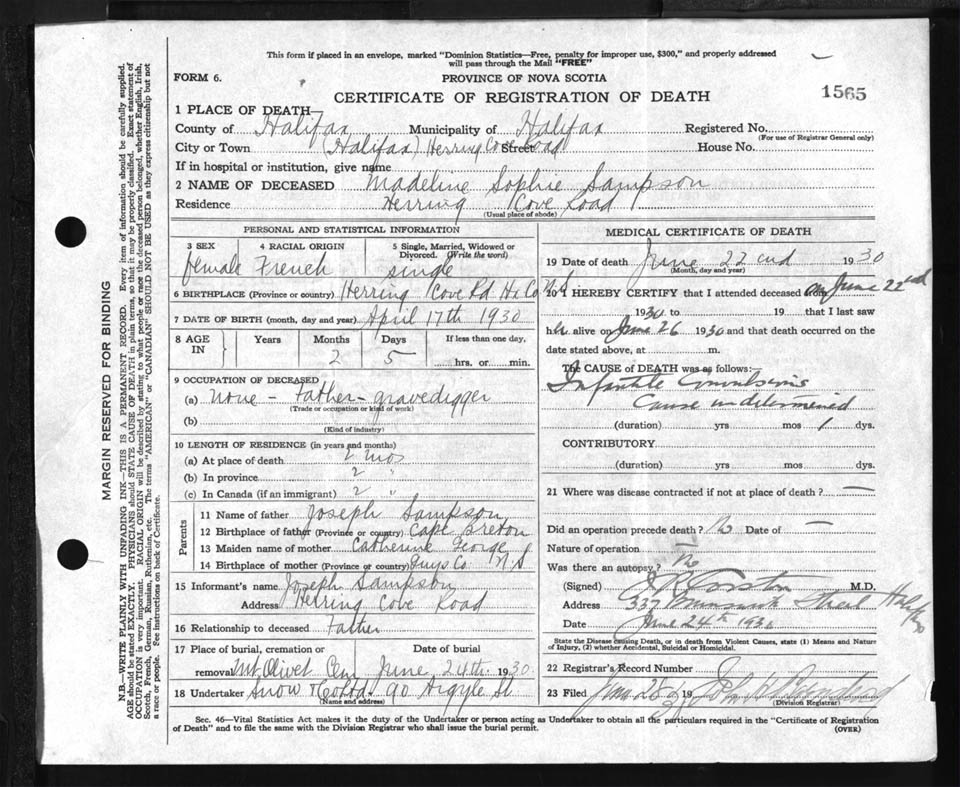 This form if placed in an envelope, marked "Dominion Statistics—Free, penalty for improper use, $300," and properly addressed
will pass through the Mail "FREE"
FORM 6.
PROVINCE OF NOVA SCOTIA
CERTIFICATE OF REGISTRATION OF DEATH
1565
1 PLACE OF DEATH—
County of Halifax Municipality of Halifax Registered No.
(For use of Registrar General only)
City or Town (Halifax) Herring Cove Road Street House No.
If in hospital or institution, give name
2 NAME OF DECEASED Madeline Sophie Sampson
Residence Herring Cove Road
(Usual place of abode)
PERSONAL AND STATISTICAL INFORMATION
3 SEX 4 RACIAL ORIGIN 5 Single, Married, Widowed or Divorced. (Write the word)
female French single
6 BIRTHPLACE (Province or country) Herring Cove Rd. Hx Co N.S
7 DATE OF BIRTH (month, day and year) April 17th 1930
8 AGE IN Years Months Days If less than one day,
2 5 hrs. or min.
9 OCCUPATION OF DECEASED
(a) None - Father - gravedigger
(Trade or occupation or kind of work)
(b)
(Kind of industry)
10 LENGTH OF RESIDENCE (in years and months)
(a) At place of death 2 mos
(b) In province 2 "
(c) In Canada (if an immigrant) 2 "
Parents
11 Name of father Joseph Sampson
12 Birthplace of father (Province or country) Cape Breton
13 Maiden name of mother Catherine George
14 Birthplace of mother (Province or country) Guys Co N.S
15 Informant's name Joseph Sampson
Address Herring Cove Road
16 Relationship to deceased Father
17 Place of burial, cremation or Date of burial
removal Mt. Olivet Cem June 24th 1930
18 Undertaker Snow & Co Ltd - 90 Argyle St
(Name and address)
MEDICAL CERTIFICATE OF DEATH
19 Date of death June 22nd 1930
(Month, day and year)
20 I HEREBY CERTIFY that I attended deceased on June 22nd
1930 to 19 that I last saw
h er alive on June 26 1930 and that death occurred on the
date stated above, at m.
The CAUSE of DEATH was as follows:—
Infantile Convulsions
Cause undetermined
(duration) yrs mos 1 dys.
CONTRIBUTORY
(duration) yrs mos dys.
21 Where was disease contracted if not at place of death? —
Did an operation precede death? No Date of —
Nature of operation —
Was there an autopsy? No
(Signed) M.D.
Address 337 Street Halifax
Date June 24th 1930
State the Disease causing Death, or in death from Violent Causes, state (1) Means and Nature
of Injury, (2) whether Accidental, Suicidal or Homicidal.
22 Registrar's Record Number
23 Filed 19
(Division Registrar)
Sec. 46—Vital Statistics Act makes it the duty of the Undertaker or person acting as Undertaker to obtain all the particulars required in the "Certificate of Registration
of Death" and to file same with the Division Registrar who shall issue the burial permit. (OVER)
MARGIN RESERVED FOR BINDING
N.B.—WRITE PLAINLY WITH UNFADING INK—THIS IS A PERMANENT RECORD. Every item of information should be carefully supplied.
AGE should be stated EXACTLY. PHYSICIANS should STATE CAUSE OF DEATH in plain terms, so that it may be properly classified. Exact statement of
OCCUPATION is very important. RACIAL ORIGIN will be described by stating to what people or race the deceased person belonged, whether English, Irish,
Scotch, French, German, Russian, Ruthenian, etc. The terms "AMERICAN" or "CANADIAN" SHOULD NOT BE USED as they express citizenship but not
a race or people. See instructions on back of Certificate.